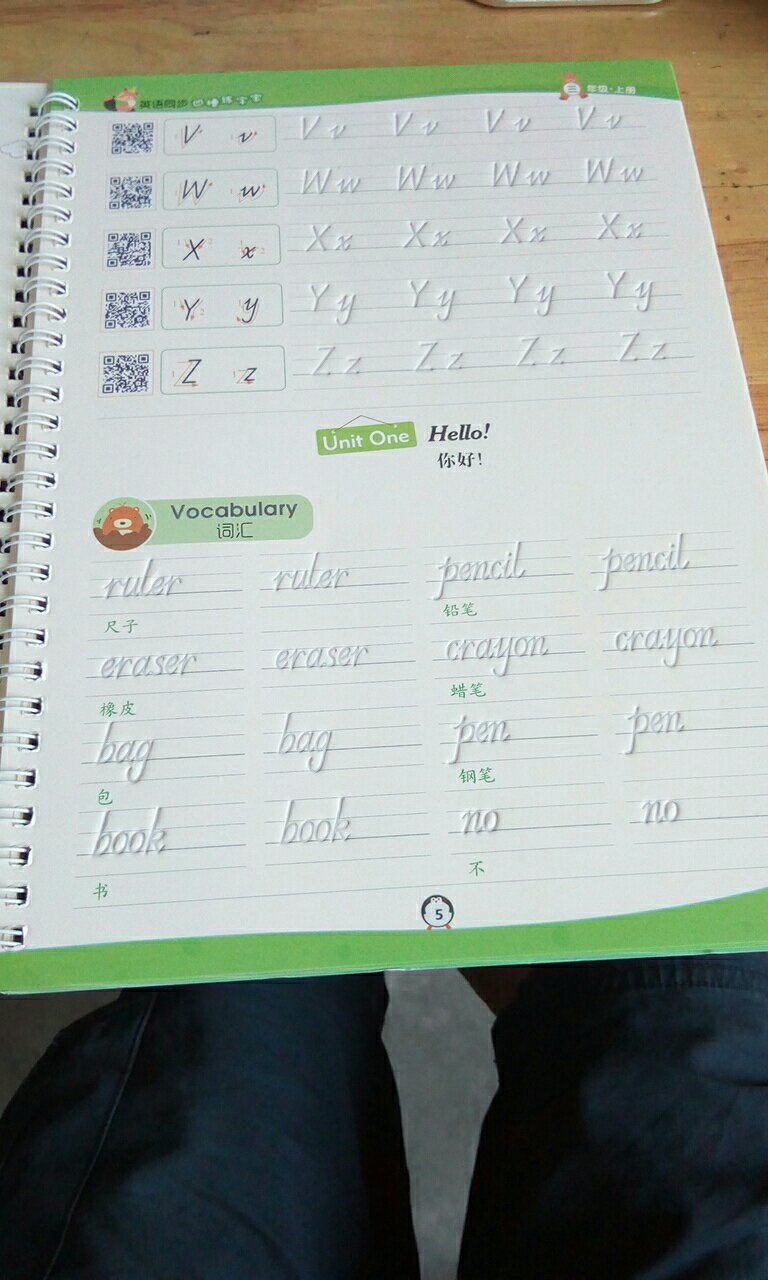 英语同步凹槽练字宝 三年级·上册
V v V v V v V v V v
W w W w W w W w W w
X x X x X x X x X x
Y y Y y Y y Y y Y y
Z z Z z Z z Z z Z z
Unit One Hello!
你好!
Vocabulary
词汇
ruler ruler pencil pencil
尺子 铅笔
eraser eraser crayon crayon
橡皮 蜡笔
bag bag pen pen
包 钢笔
book book no no
书 不
5